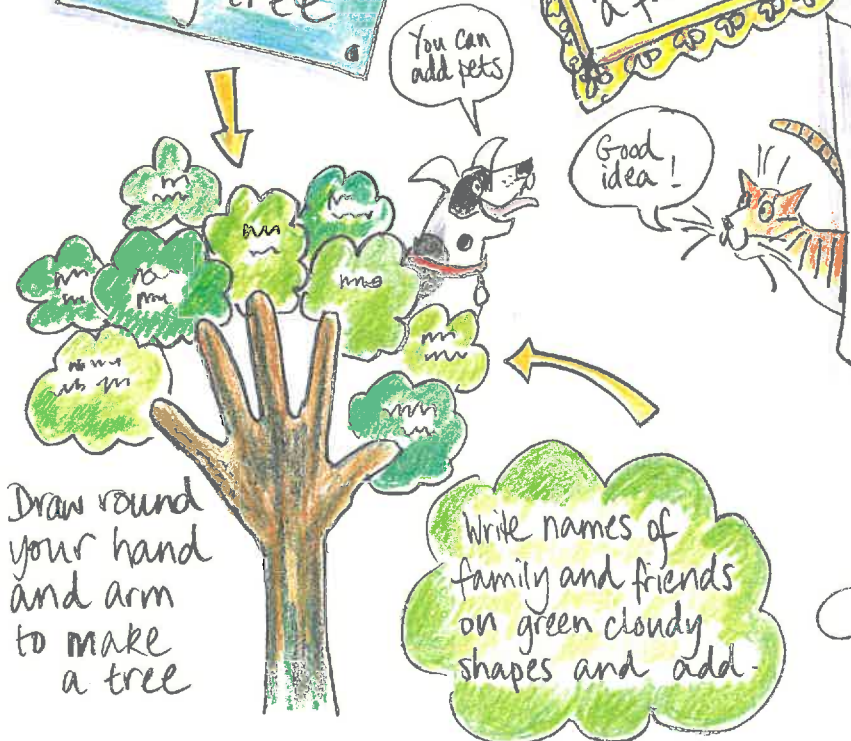 tree
You can
add pets
Good
idea!
Draw round
your hand
and arm
to make
a tree
Write names of
family and friends
on green cloudy
shapes and add.